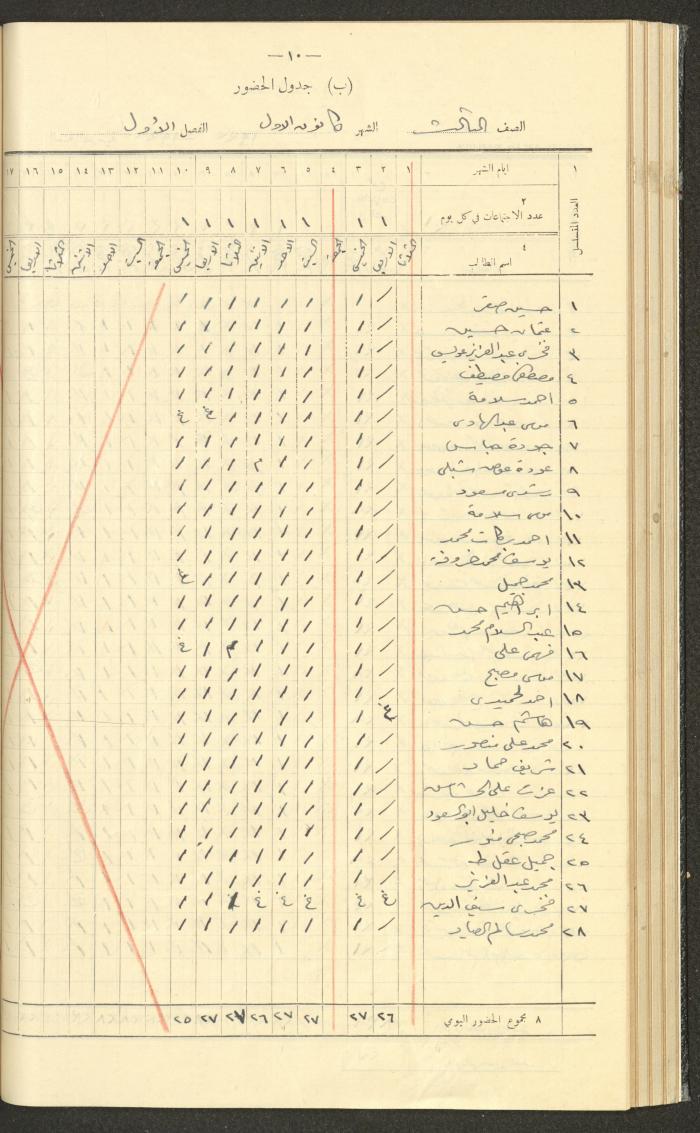 — ١٠ —
(ب) جدول الحضور
الصف الثالث الشهر كانون الاول الفصل الأول
١ ايام الشهر ١ ٢ ٣ ٤ ٥ ٦ ٧ ٨ ٩ ١٠ ١١ ١٢ ١٣ ١٤ ١٥ ١٦ ١٧
العدد المتسلسل
٢
عدد الاجتماعات في كل يوم ١ ١ ١ ١ ١ ١ ١ ١
٤
اسم الطالب الثلاثا الاربعا الخميس الجمعة السبت الاحد الاثنين الثلاثا الاربعا الخميس الجمعة السبت الاحد الاثنين الثلاثا الاربعا الخميس
١ حسين صقر / / / / / / / /
٢ عثمان حسين / / / / / / / /
٣ فخري عبد العزيز / / / / / / / /
٤ مصطفى مصيطف / / / / / / / /
٥ احمد سلامة / / / / / / / /
٦ موسى عبد الهادي / / / / / / غ غ
٧ جودة / / / / / / / /
٨ عودة عوض شبلي / / / / م / / /
٩ رشدي مسعود / / / / / / / /
١٠ موسى سلامة / / / / / / / /
١١ احمد بركات محمد / / / / / / / /
١٢ يوسف محمد / / / / / / / /
١٣ محمد جميل / / / / / / / غ
١٤ ابراهيم حسن / / / / / / / /
١٥ عبد السلام محمد / / / / / / / /
١٦ فهمي علي / / / / / م / غ
١٧ موسى مصبح / / / / / / / /
١٨ احمد الحميدي / / / / / / / /
١٩ هاشم حسن غ / / / / / / /
٢٠ محمد علي منصور / / / / / / / /
٢١ شريف حماد / / / / / / / /
٢٢ عزت علي / / / / / / / /
٢٣ يوسف خليل ابو السعود / / / / / / / /
٢٤ محمد صبحي / / / / / / / /
٢٥ جميل عقل / / / / / / / /
٢٦ محمد عبد العزيز / / / / / / / /
٢٧ فخري سيف الدين غ غ غ غ غ / / /
٢٨ محمد سالم / / / / / / / /
٨ مجموع الحضور اليومي ٢٦ ٢٧ ٢٧ ٢٧ ٢٦ ٢٧ ٢٧ ٢٥